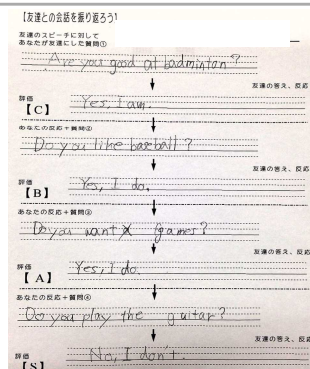 【友達との会話を振り返ろう】
友達のスピーチに対して
あなたが友達にした質問①
Are you good at badminton?
友達の答え、反応
評価
【C】
Yes, I am.
あなたの反応+質問②
Do you like baseball?
友達の答え、反応
評価
【B】
Yes, I do.
あなたの反応+質問③
Do you want games?
友達の答え、反応
評価
【A】
Yes, I do.
あなたの反応+質問④
Do you play the guitar?
友達の答え、反応
評価
【S】
No, I don't.